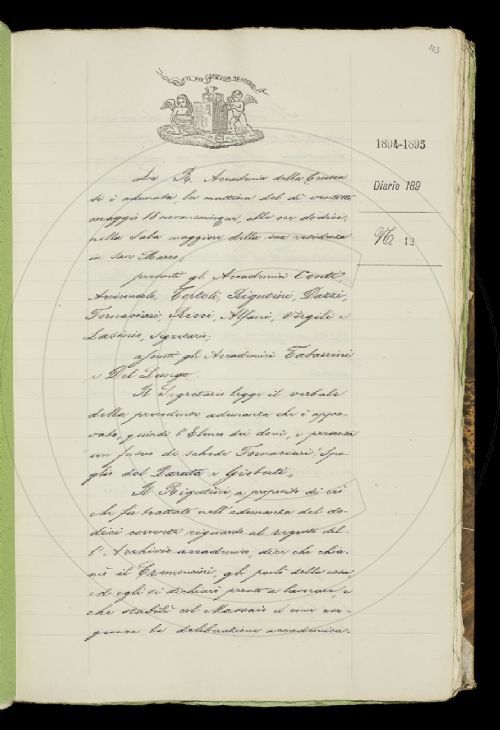 103
1894-1895
Diario 189
N. 13
La R. Accademia della Crusca
si è adunata la mattina del dì ventotto
maggio 18novancinque, alle ore dodici,
nella Sala maggiore della sua residenza
in San Marco,
presenti gli Accademici Conti,
Arciconsolo, Tortoli, Rigutini, Dazzi,
Fornaciari, Ricci, Alfani, Vergili e
Labanio, Segretario;
assenti gli Accademici Tabarrini
e Del Lungo.
Il Segretario legge il verbale
della precedente adunanza che è appro-
vato, quindi l'Elenco dei doni, e presenta
un fascio di schede Fornaciari, Spo-
glio del Paruta e Gioberti.
Il Rigutini, a proposito di ciò
che fu trattato nell'adunanza del do-
dici corrente riguardo al regesto del-
l'Archivio accademico, dice che chia-
mò il Cremoncini, gli parlò della cosa,
ed egli si dichiarò pronto a lavorare e
che stabilì col Massaio il come ese-
guire la deliberazione accademica.